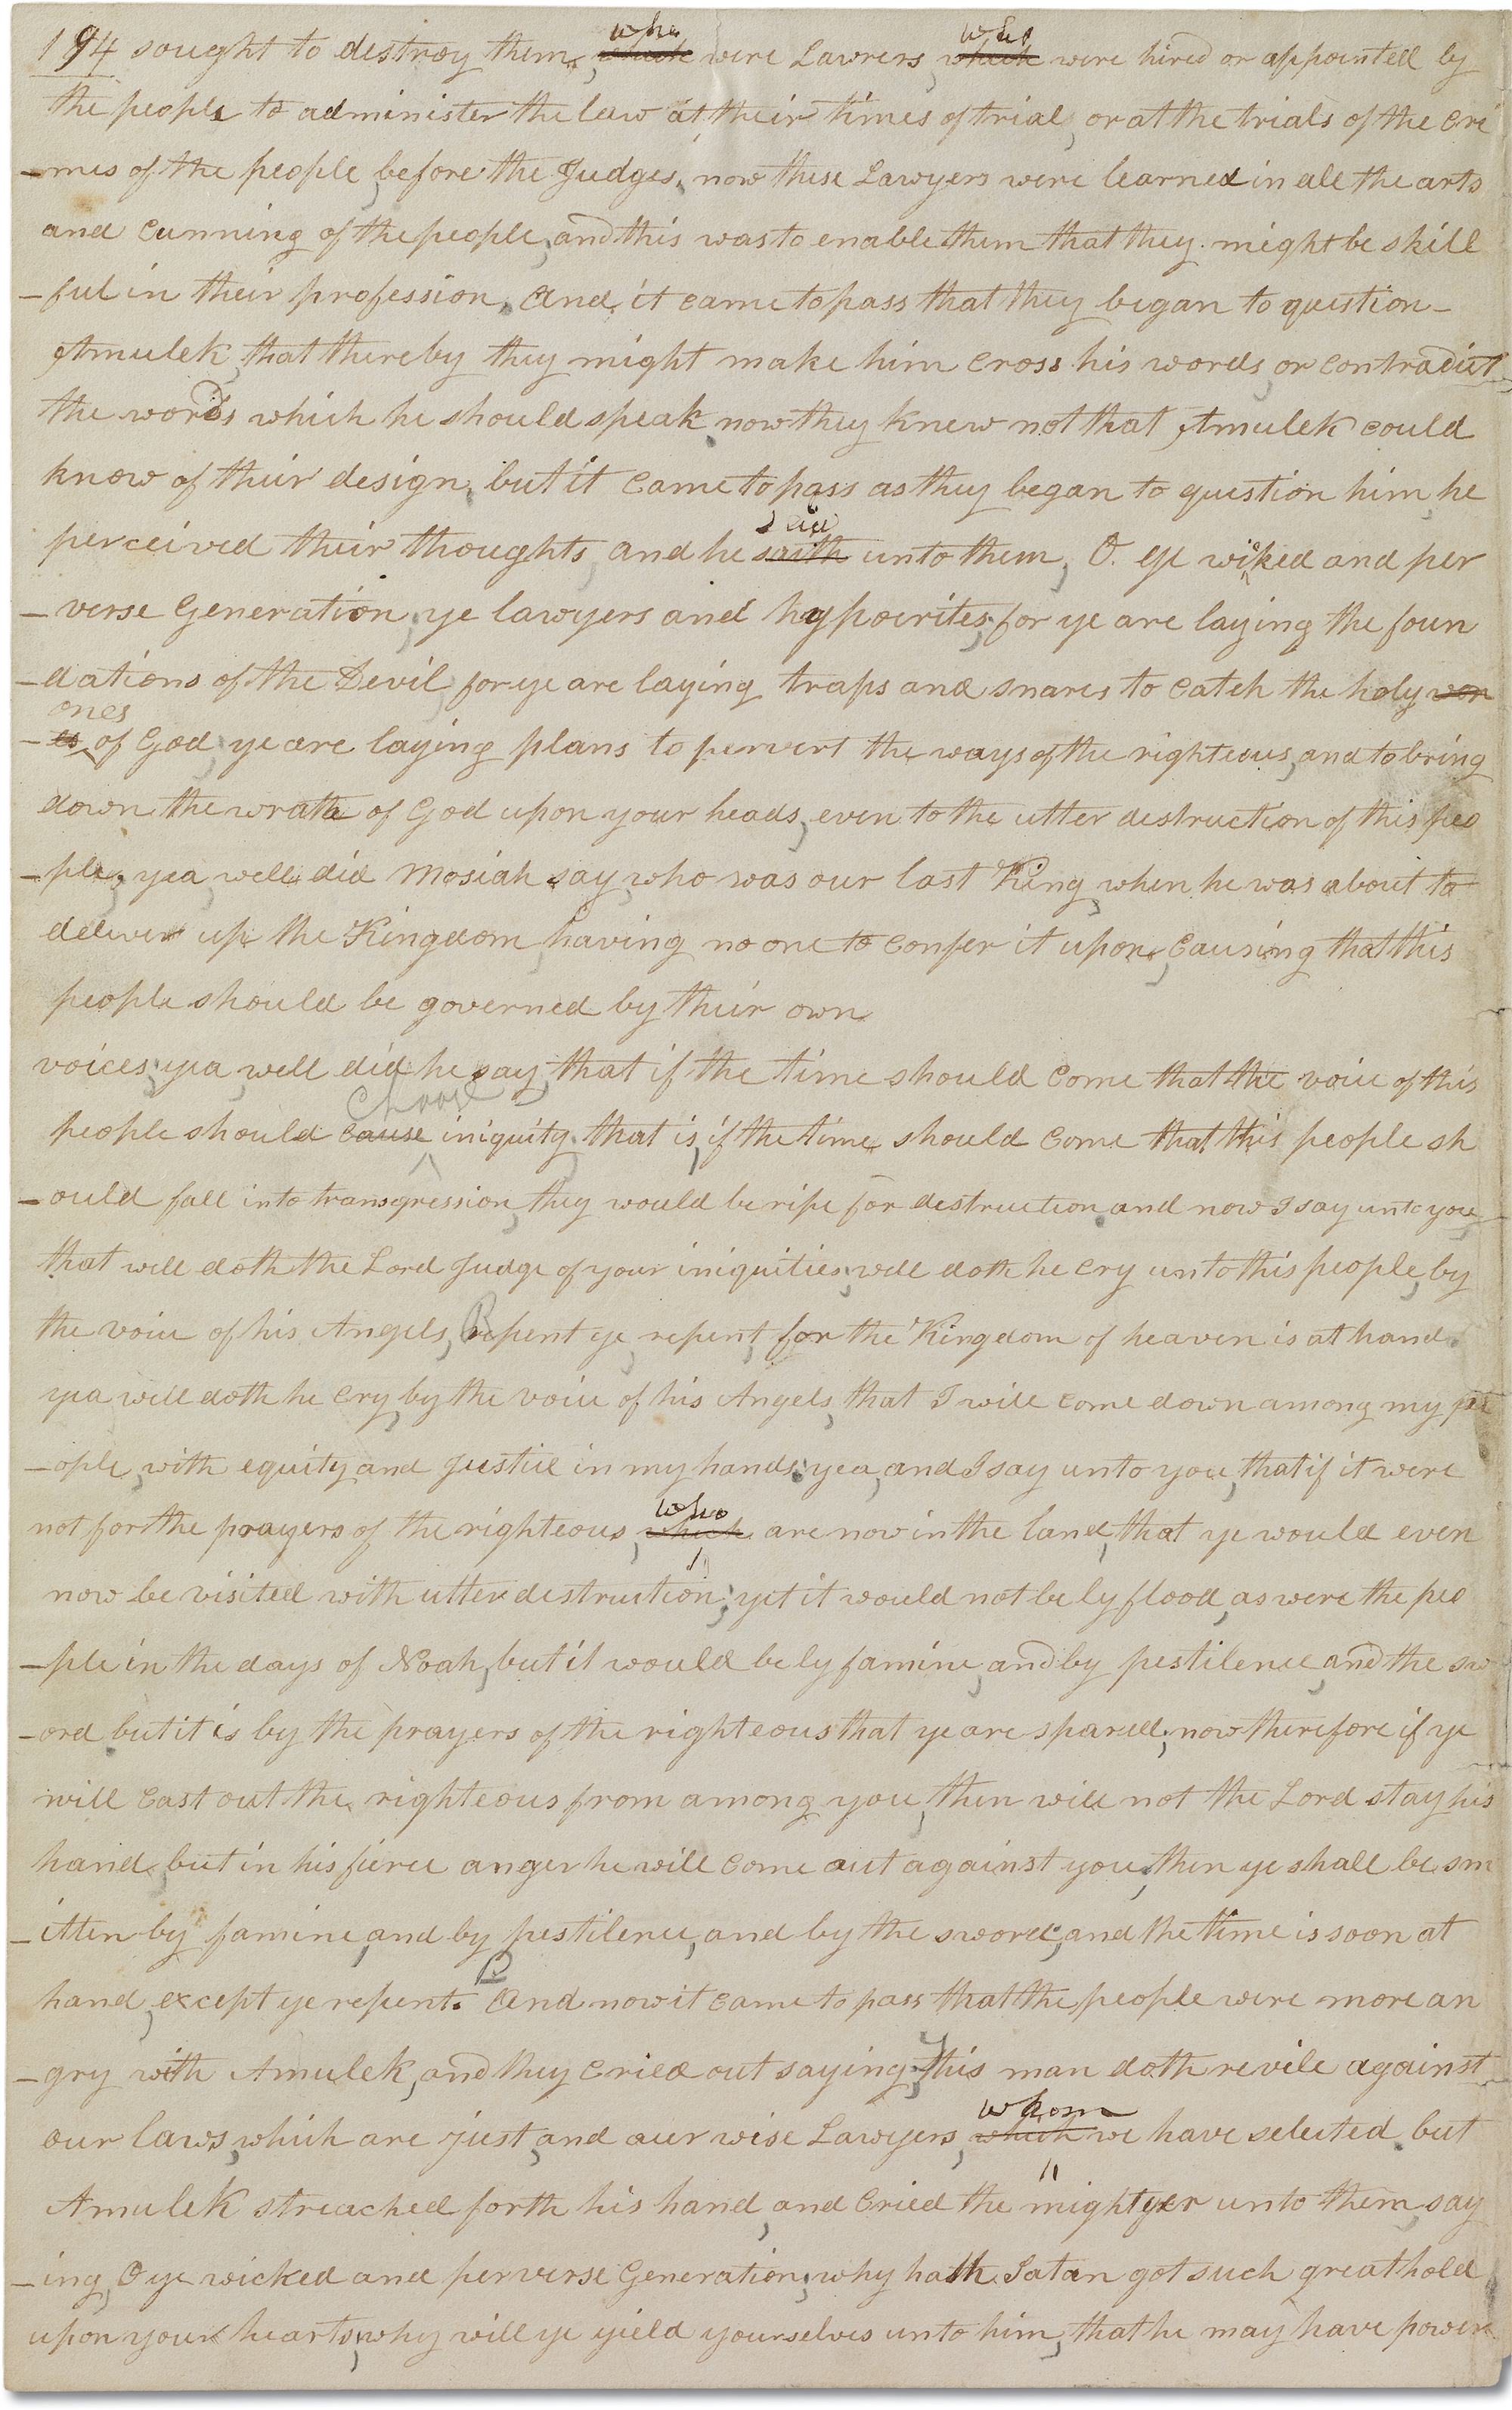 194 sought to destroy them, who which were Lawrers, who which were hired or appointed by
the people to administer the law at their times of trial, or at the trials of the cri
-mes of the people, before the Judges, now these Lawyers were learned in all the arts
and cunning of the people, and this was to enable them that they might be skill
-ful in their profession. And it came to pass that they began to question-
Amulek, that thereby they might make him cross his words, or contradict
the words which he should speak, now they knew not that Amulek could
know of their design, but it came to pass as they began to question him, he
perceived their thoughts, and he said saith unto them, O. ye wicked and per
-verse Generation, ye lawyers and hypocrites, for ye are laying the foun
-dations of the Devil, for ye are laying traps and snares to catch the holy won
ones
-es of God, ye are laying plans to pervert the ways of the righteous, and to bring
down the wrath of God upon your heads, even to the utter destruction of this peo
-ple, yea, well did Mosiah say, who was our last King, when he was about to
deliver up the Kingdom, having no one to confer it upon, causing that this
people should be governed by their own
voices, yea, well did he say, that if the time should come that the voice of this
people should choose cause iniquity, that is, if the time should come that this people sh
-ould fall into transgression, they would be ripe for destruction, and now I say unto you,
that well doth the Lord Judge of your iniquities, well doth he cry unto this people, by
the voice of his Angels, Repent ye, repent, for the Kingdom of heaven is at hand.
yea well doth he cry, by the voice of his Angels, that I will come down among my pe
-ople, with equity and Justice in my hands; yea, and I say unto you, that if it were
not for the prayers of the righteous, who which are now in the land, that ye would even
now be visited with utter destruction; yet it would not be by flood, as were the peo
-ple in the days of Noah, but it would be by famine, and by pestilence, and the sw
-ord but it is by the prayers of the righteous that ye are spared; now therefore if ye
will cast out the righteous from among you, then will not the Lord stay his
hand, but in his fierce anger he will come out against you, then ye shall be sm
-itten by famine, and by pestilence, and by the sword; and the time is soon at
hand, except ye repent. P And now it came to pass that the people were more an
-gry with Amulek, and they cried out saying, This man doth revile against
our laws, which are just, and our wise Lawyers, whom which we have selected, but
Amulek streached forth his hand, and cried the mightyer unto them, say
-ing, O ye wicked and perverse Generation; why hath Satan got such great hold
upon your hearts, why will ye yield yourselves unto him, that he may have power